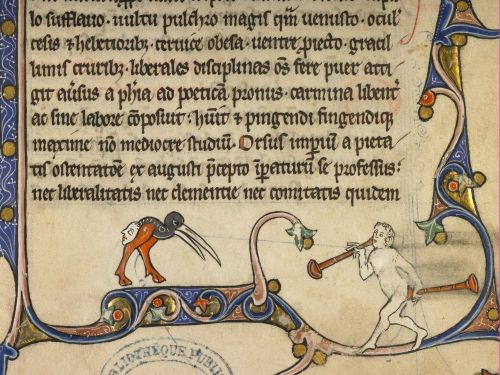 lo sufflauo. uultu pulchro magis qm̄ uenusto. ocul
cesis ⁊ hebetioribꝫ. ceruice obesa. uentre ꝓiecto. gracil
limis cruribꝫ. liberales disciplinas oīs fere puer atti
git auīsus a phīa ad poeticam pronus. carmina libent͛
ac sine labore ꝯposuit: hūit ⁊ pingendi fingendiqꝫ
maxime nō mediocre studiū. Orsus impiū a pieta
tis ostentatōem ex augusti p̄cepto īpaturū se professus:
nec liberalitatis nec clementie nec comitatis quidem
BLIOTHÈQUE PUBLI